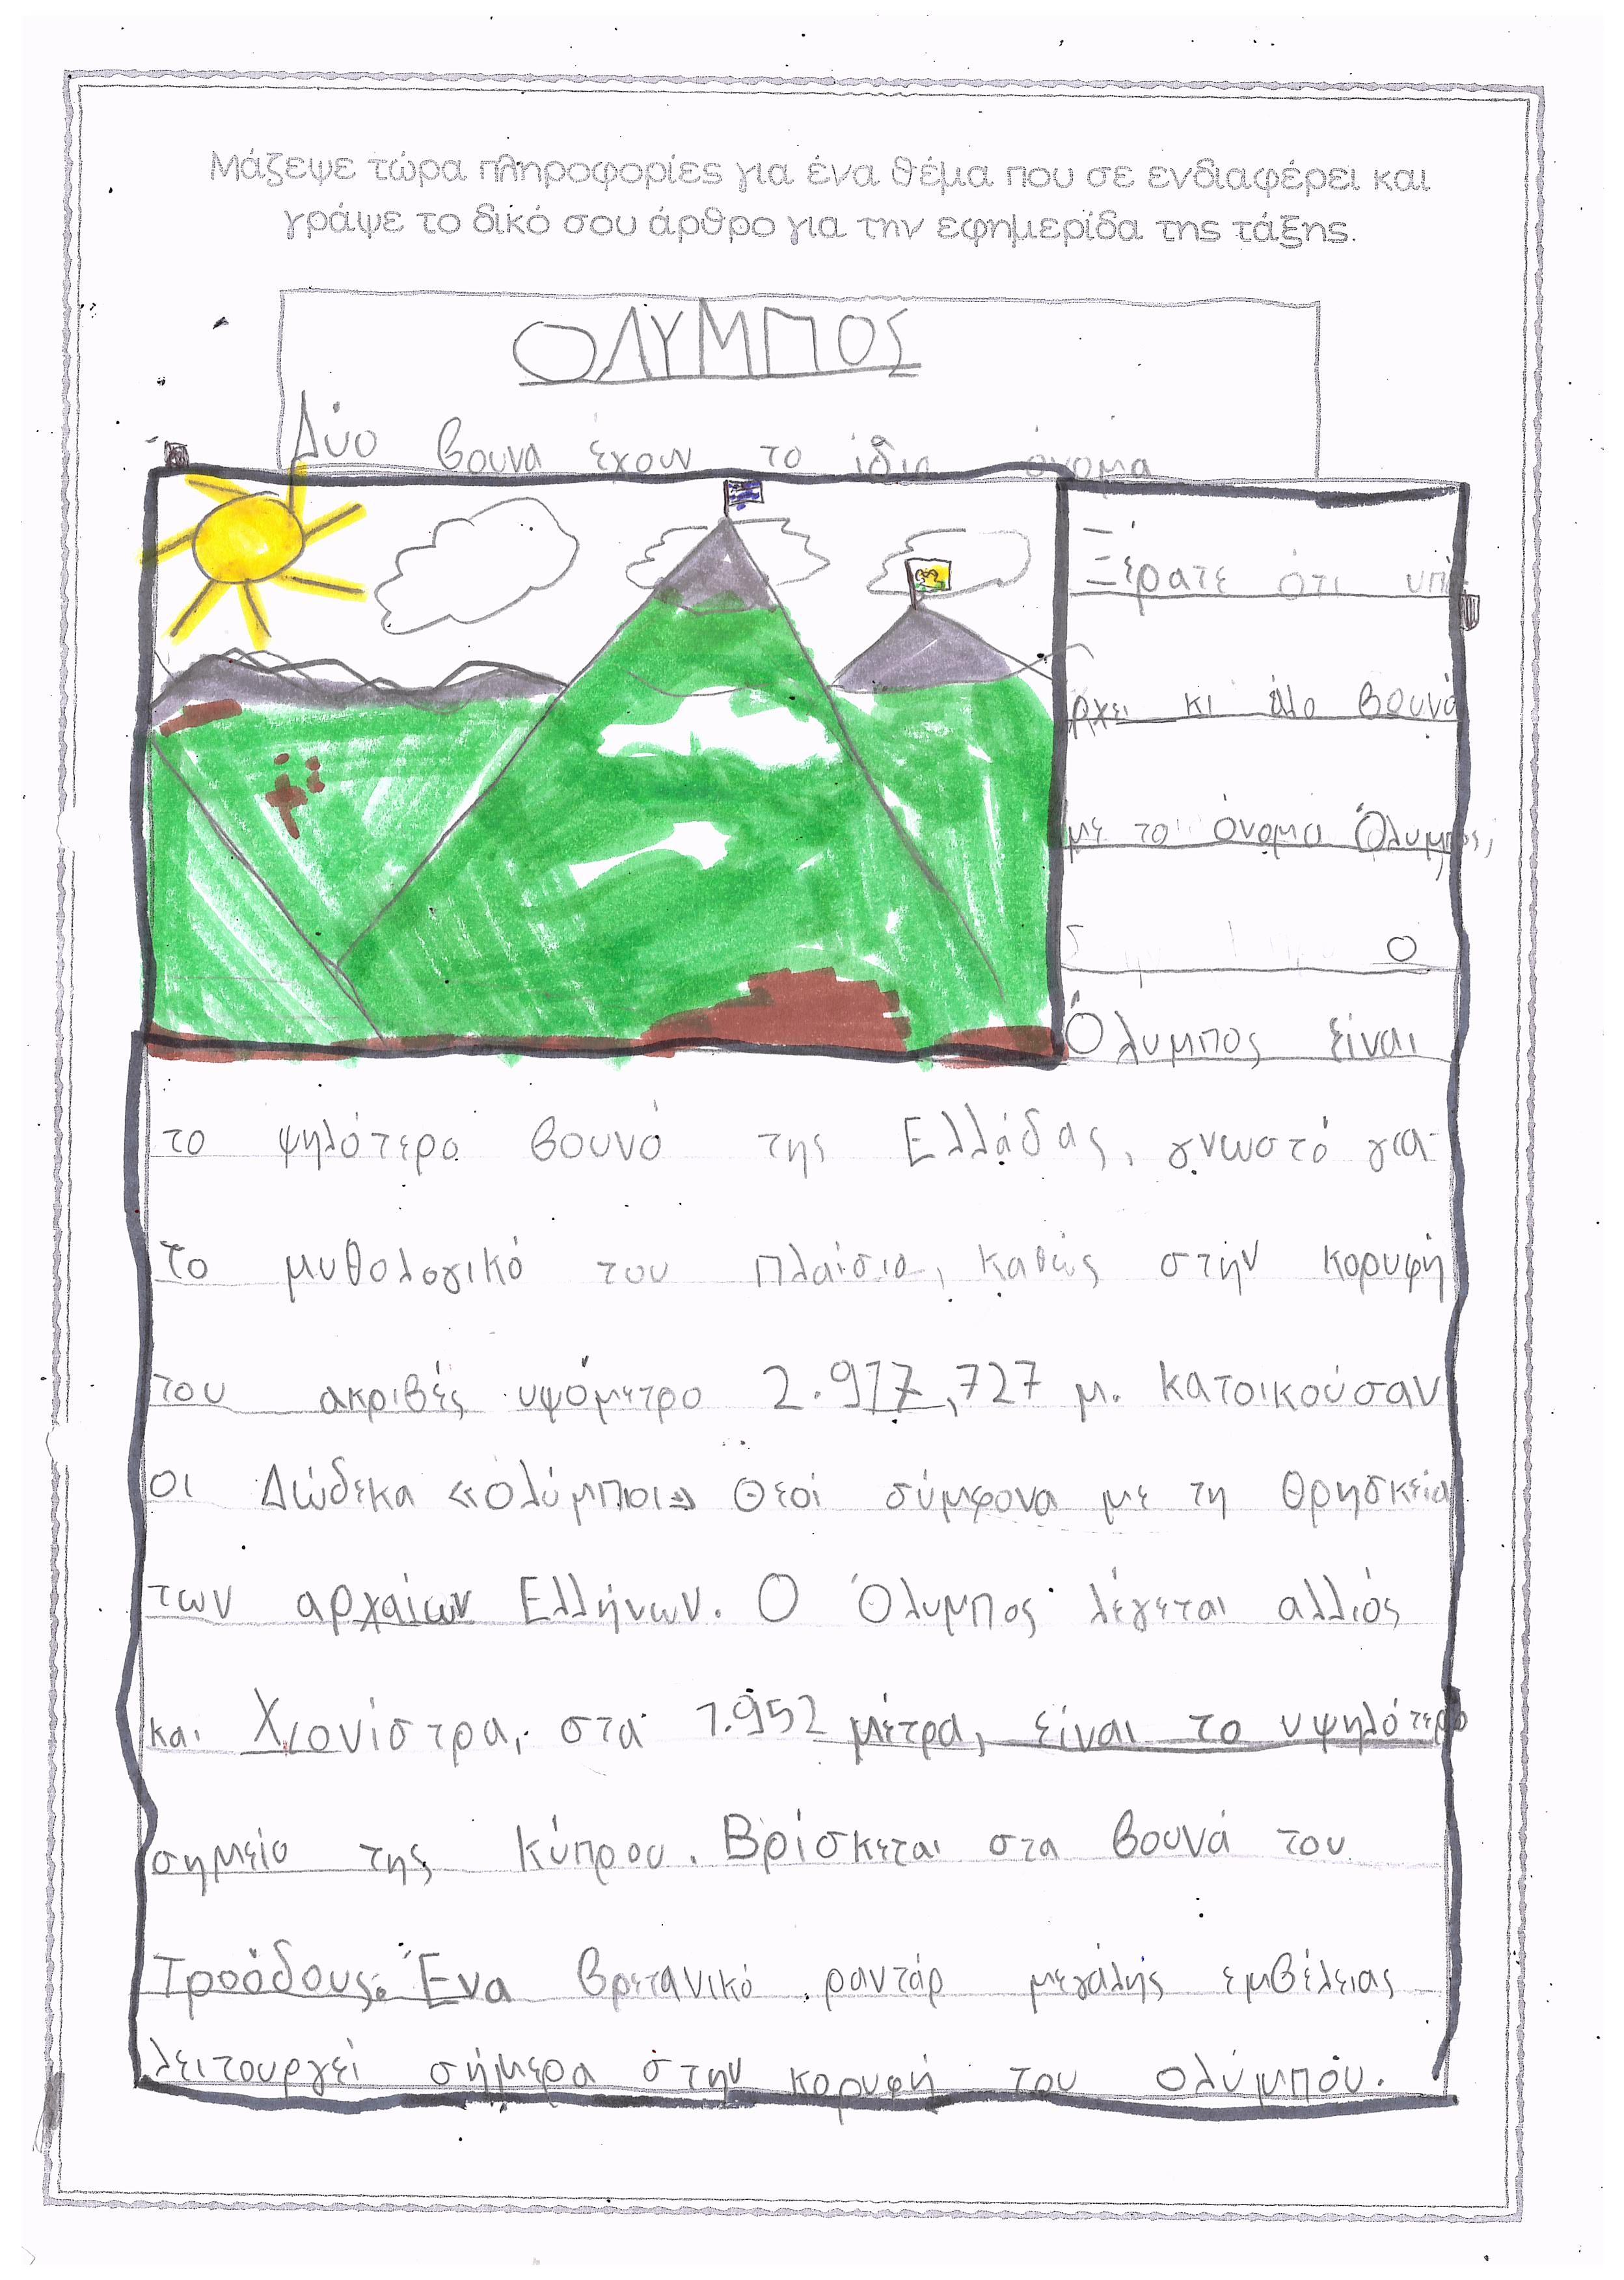 Μάζεψε τώρα πληροφορίες για ένα θέμα που σε ενδιαφέρει και
γράψε το δικό σου άρθρο για την εφημερίδα της τάξης.
ΟΛΥΜΠΟΣ
Δύο βουνα έχουν το ίδιο όνομα
Ξέρατε ότι υπή
ρχει κι άλο βουνό
με το όνομα Όλυμπος;
Ο
Όλυμπος είναι
το ψηλότερο βουνό της Ελλάδας, γνωστό για
το μυθολογικό του πλαίσιο, καθώς στην κορυφή
του ακριβές υψόμετρο 2.917,727 μ. κατοικούσαν
οι Δώδεκα «ολύμπιοι» Θεοί σύμφονα με τη Θρησκεία
των αρχαίων Ελλήνων. Ο Όλυμπος λέγεται αλλιός
και Χιονίστρα, στα 1.952 μέτρα, είναι το υψηλότερο
σημείο της Κύπρου. Βρίσκεται στα βουνά του
Τροόδους. Ένα βρετανικό ραντάρ μεγάλής εμβέλειας
λειτουργεί σήμερα στην κορυφή του ολύμπου.